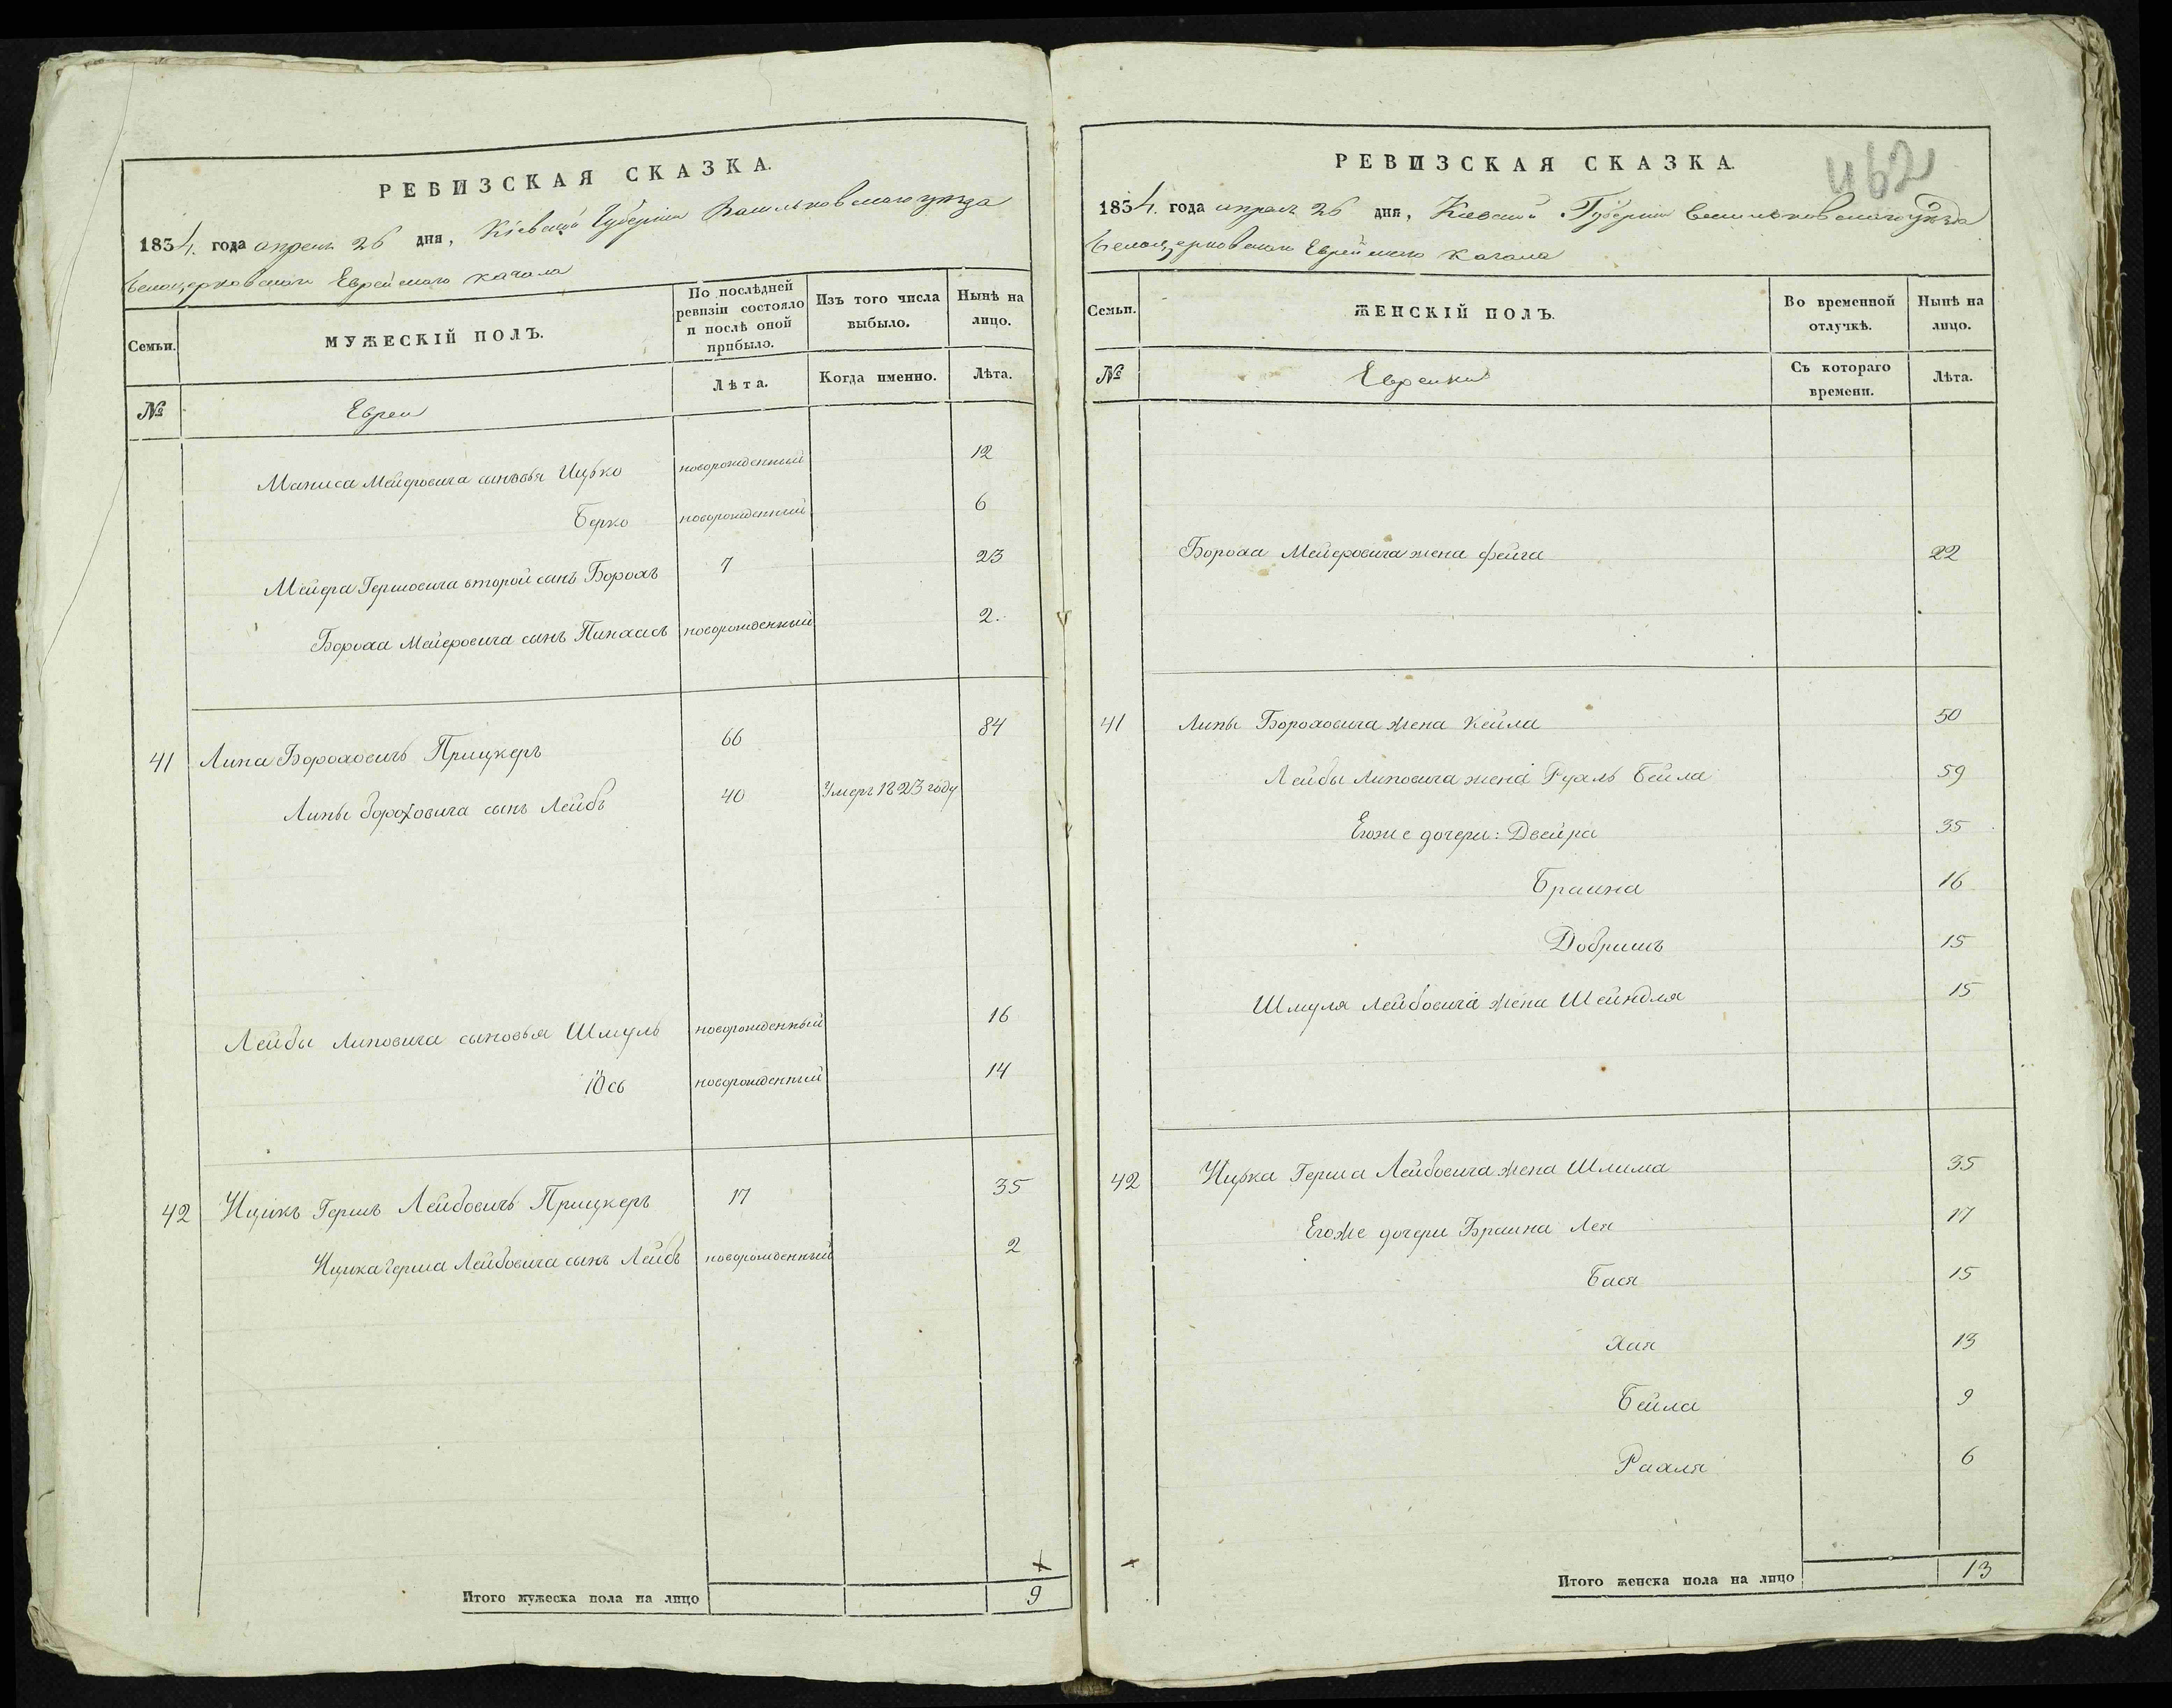 РЕВИЗСКАЯ СКАЗКА.
1834. года апреля 26 дня, Кіевской Губерніи Васильковскаго уѣзда
Белоцерковскаго Еврейскаго кагала
Семьи.
МУЖЕСКІЙ ПОЛЪ.
По послѣдней ревизіи состояло и послѣ оной прибыло.
Изъ того числа выбыло.
Нынѣ на лицо.
№
Евреи
Лѣта.
Когда именно.
Лѣта.
Маниса Мейеровича сыновья Ицько новорожденный 12
Берко новорожденный 6
Мейера Гершовича второй сынъ Борохъ 7 23
Бороха Мейеровича сынъ Пинхасъ новорожденный 2.
41 Липа Бороховичъ Прицкеръ 66 84
Липы бороховича сынъ Лейбъ 40 Умеръ 1823 году
Лейбы Липовича сыновья Шмуль новорожденный 16
Юсь новорожденный 14
42 Ицикъ Гершъ Лейбовичъ Прицкеръ 17 35
Ицика Герша Лейбовича сынъ Лейбъ новорожденный 2
Итого мужеска пола на лицо 9
462
РЕВИЗСКАЯ СКАЗКА.
1834. года апреля 26 дня, Киевской Губернии Васильковскаго уѣзда
Белоцерковскаго Еврейскаго Кагала
Семьи.
ЖЕНСКІЙ ПОЛЪ.
Во временной отлучкѣ.
Нынѣ на лицо.
№
Еврейки
Съ котораго времени.
Лѣта.
Бороха Мейеровича жена Фейга 22
41 Липы Бороховича жена Кейла 50
Лейбы Липовича жена Рухль Бейла 59
Егоже дочери: Двейра 35
Браина 16
Добришъ 15
Шмуля Лейбовича жена Шейндля 15
42 Ицька Герша Лейбовича жена Шлима 35
Егоже дочери Браина Лея 17
Бася 15
Хая 13
Бейла 9
Рахля 6
Итого женска пола на лицо 13